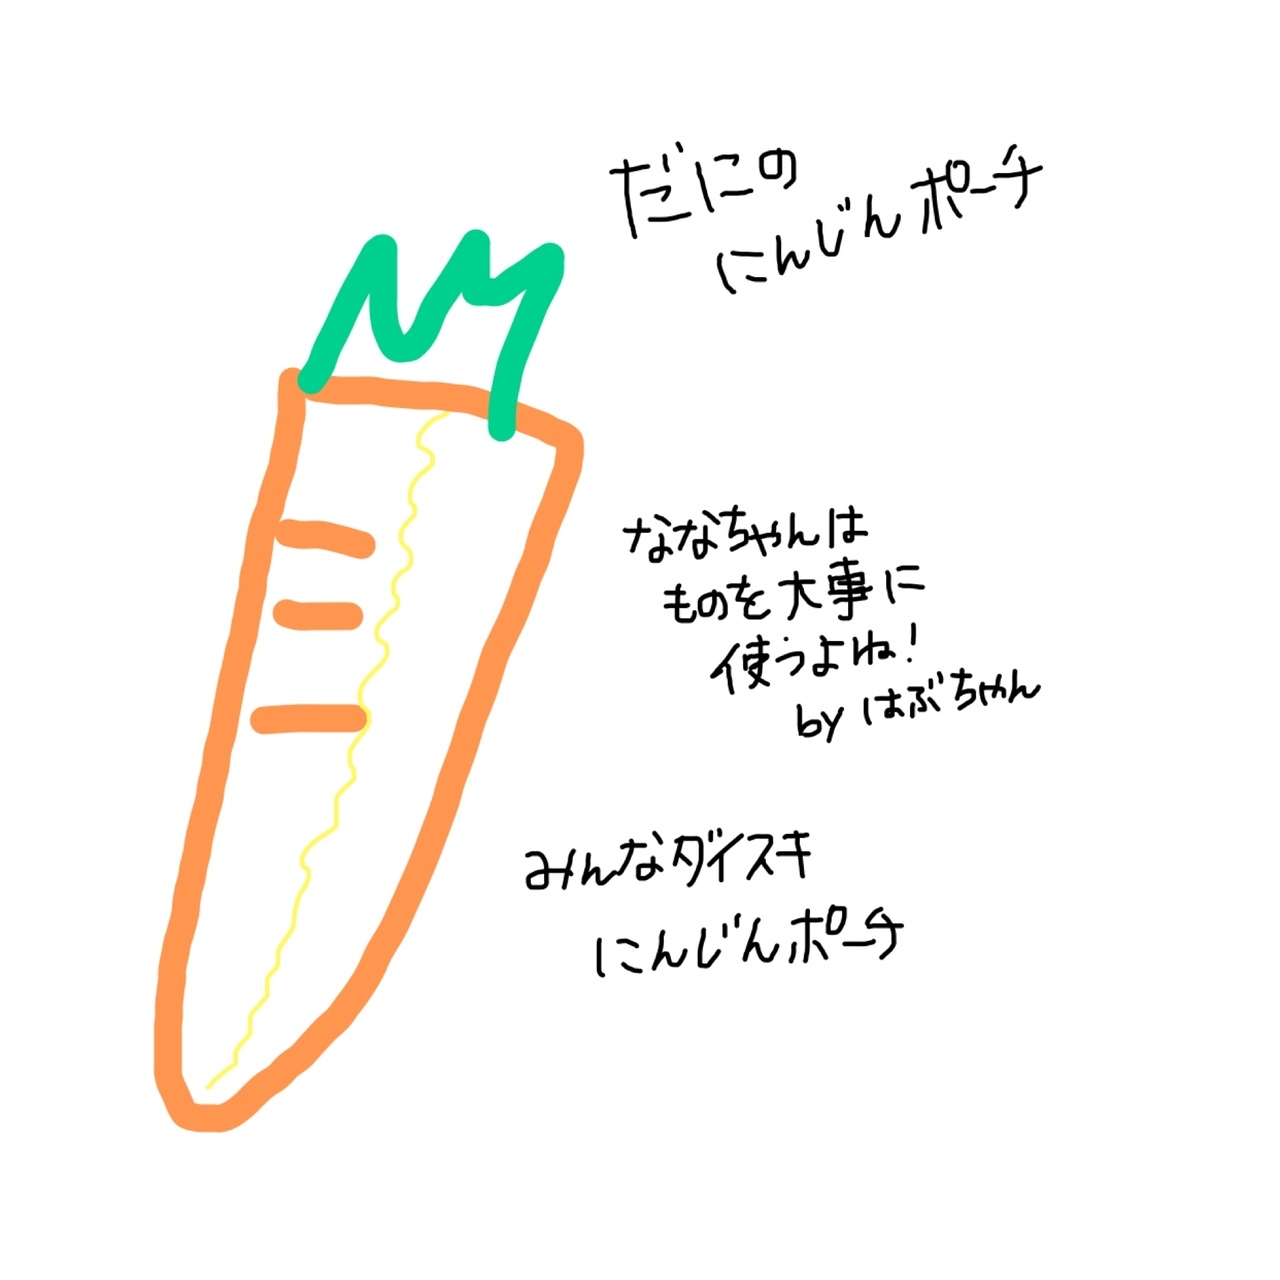 だにの
にんじんポーチ
ななちゃんは
ものを大事に
使うよね!
by はぶちゃん
みんなダイスキ
にんじんポーチ